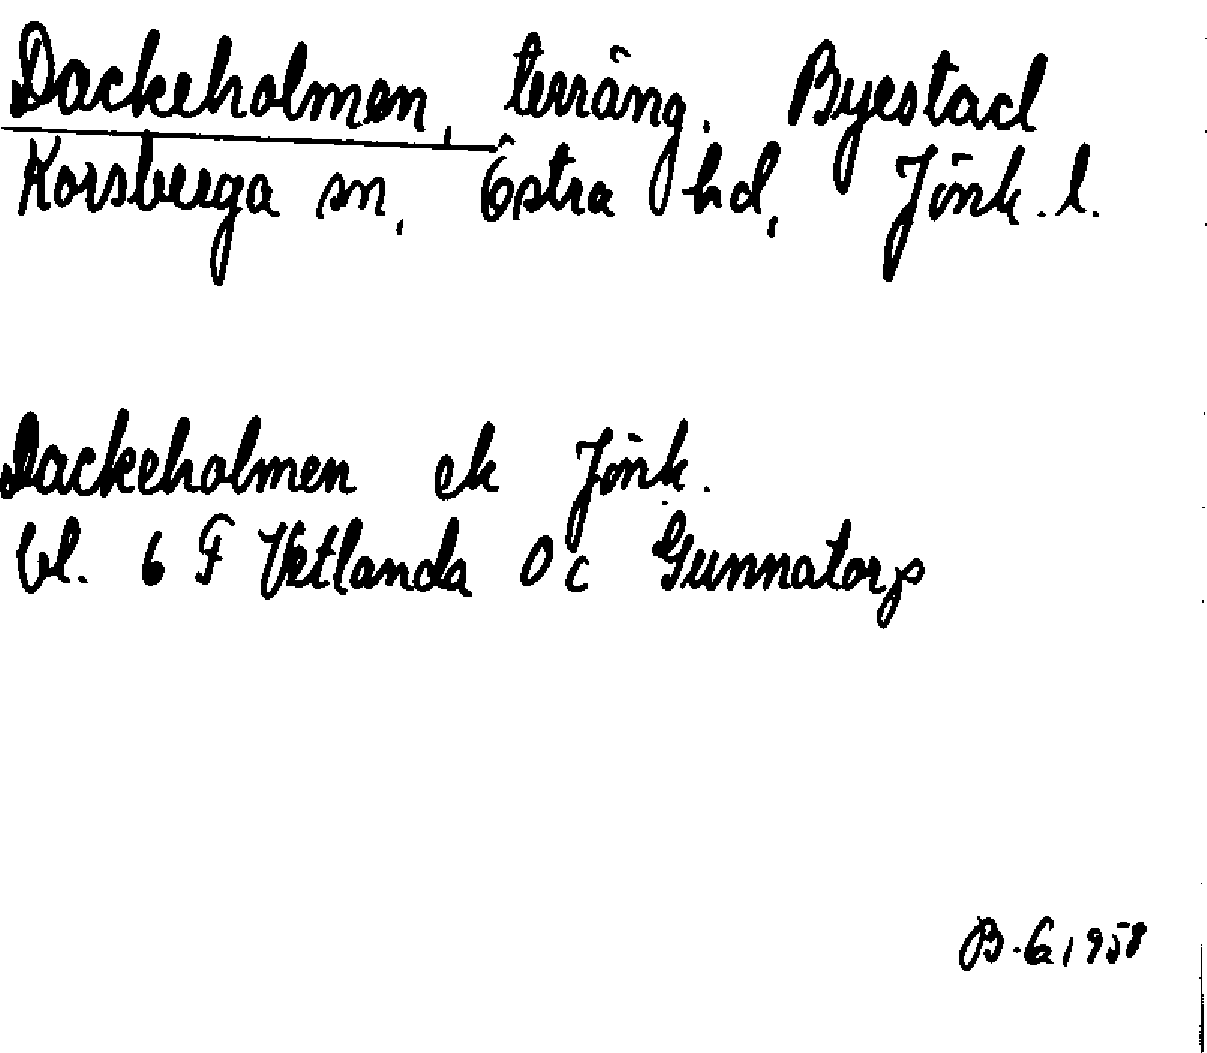 Dackeholmen, terräng. Byestad
Korsberga sn, Östra hd, Jönk. l.
Dackeholmen ek Jönk.
bl. 6 F Vetlanda 0 c Gunnatorp
B. G. 1958